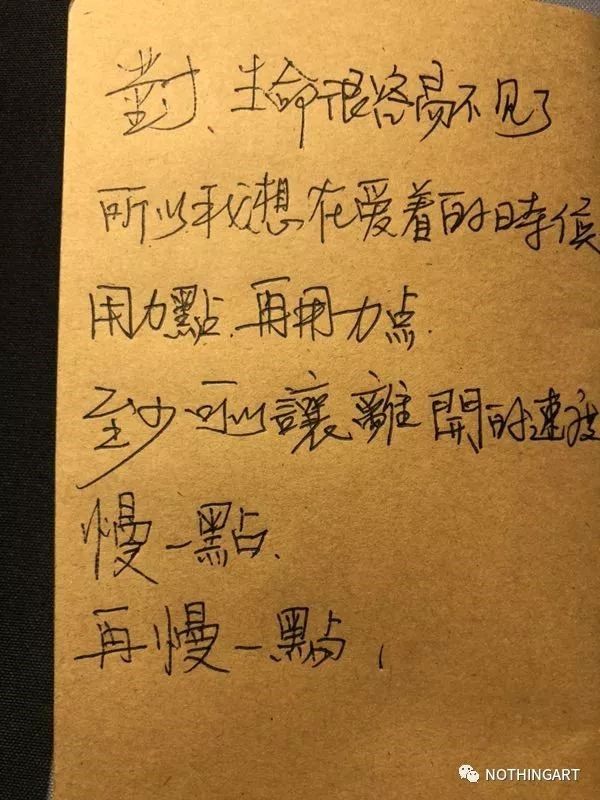 對、生命很容易不见了
所以我想在爱着的時候
用力點.再用力点.
至少可以讓離開的速度
慢一點.
再慢一點,
NOTHINGART